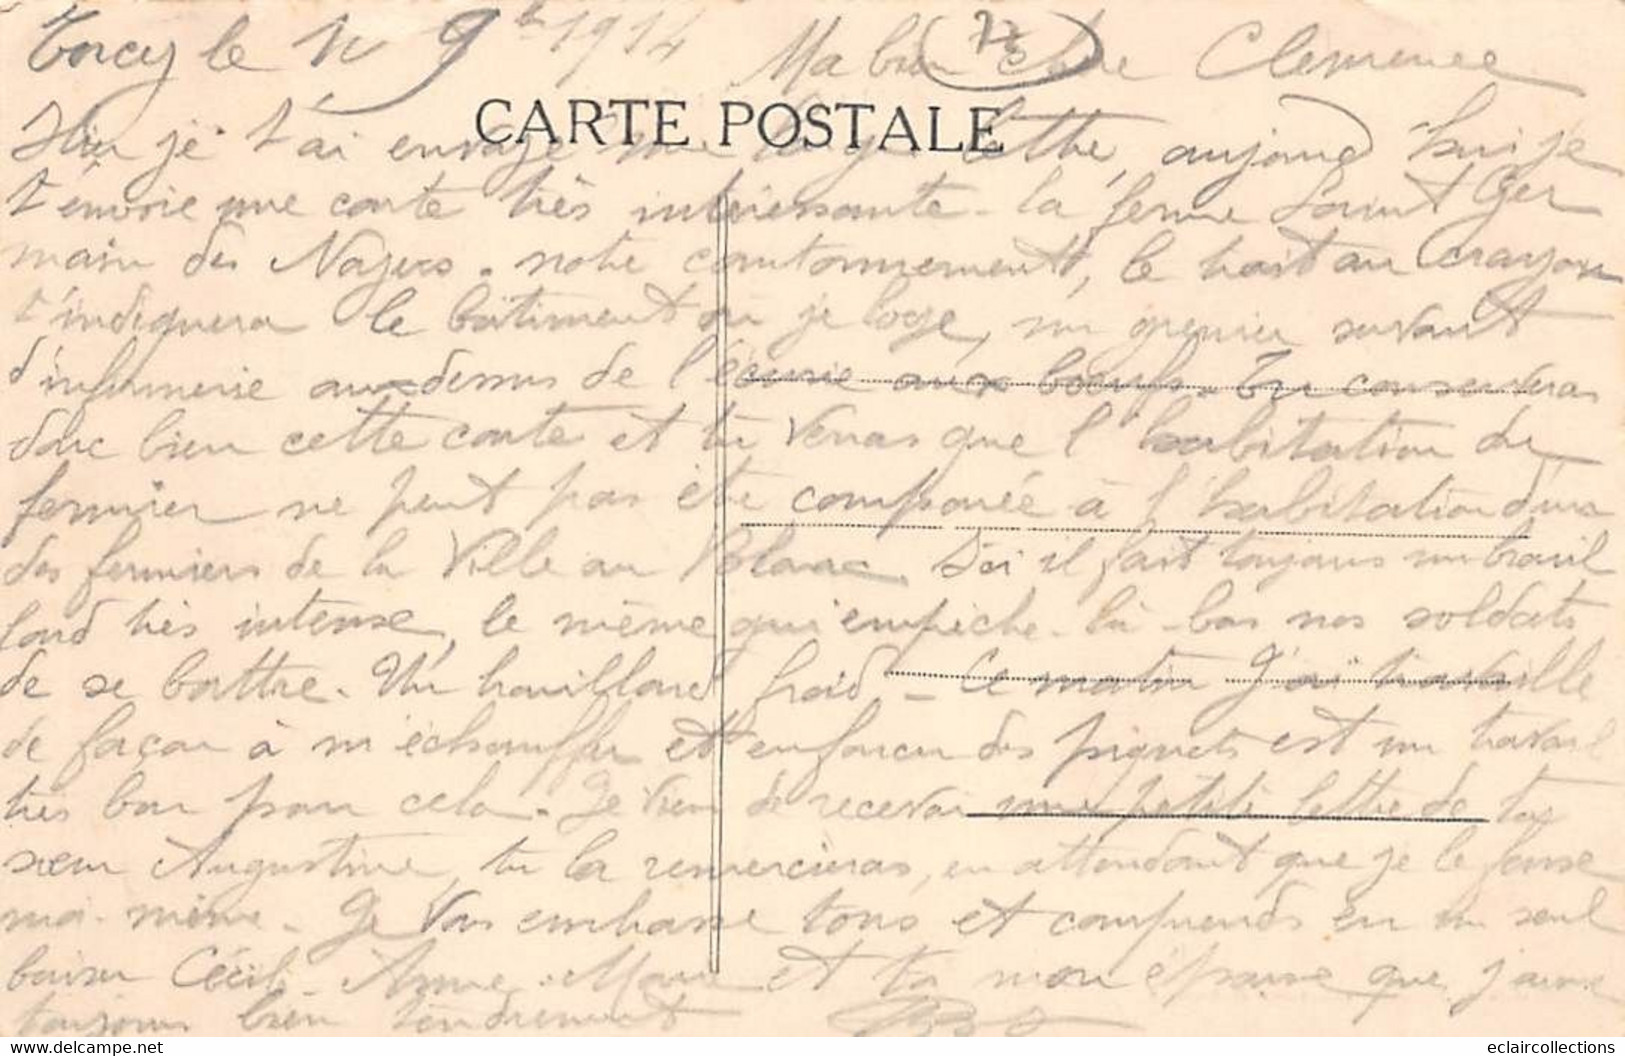 Torcy le 9bre 1914 Ma bien chère Clemence
77
CARTE POSTALE
Hier je t'ai envoyé une longue lettre, aujourd'hui je
t'envoie une carte très intéressante - la ferme Saint Ger
main des Noyers. notre cantonnement, le trait au crayon
t'indiquera le bâtiment où je loge, un grenier servant
d'infirmerie au dessus de l'écurie aux boeufs. Tu conserveras
donc bien cette carte et tu verras que l'habitation du
fermier ne peut pas être comparée à l'habitation d'un
des fermiers de la Ville au Blanc. Ici il fait toujours un brouil
lard très intense, le même qui empêche - là - bas nos soldats
de se battre. Un brouillard froid - Ce matin j'ai travaillé
de façon à m'échauffer et enfoncer des piquets est un travail
très bon pour cela. Je viens de recevoir une petite lettre de ta
sœur Augustine, tu la remercieras, en attendant que je le fasse
moi-même. Je vous embrasse tous et comprends en un seul
baiser Cécile - Anne-Marie et ta mon épouse que j'aime
toujours bien tendrement
eclaircollections
www.delcampe.net